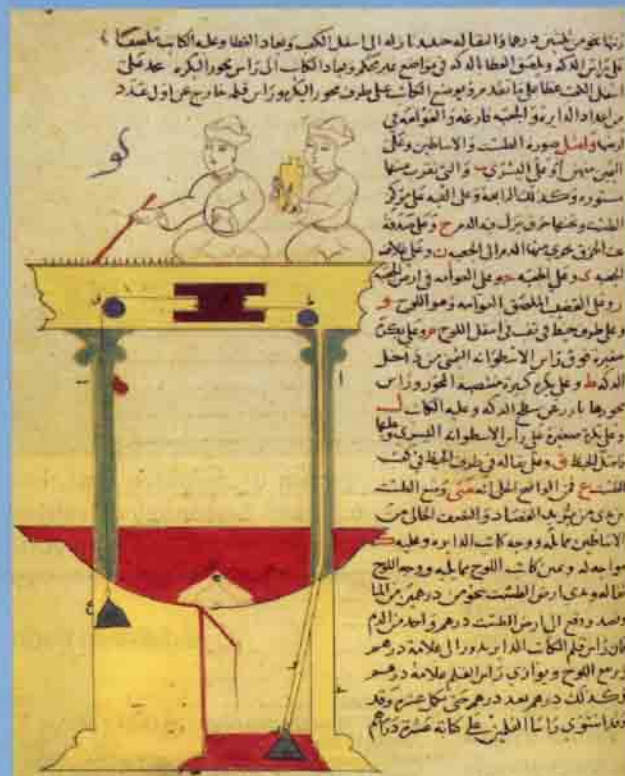 زنتها نحو من خمسين درهما والثقاله حديد نازله الى اسفل الكف ويعاد الغطا وعليه الكاتب ملصقا
على راس الدكه ويلصق الغطا بالدكه في مواضع ويعاد الكاتب الى راس محور البكره
اسفل الكف غطا على ما تقدم ويوضع الكاتب على طرف محور البكره وراس قلمه خارج عن اول عدد
من اعداد الدايره والجعبه فارغه والعوامه في
ارضها وامثل صورة الطست والاساطين وعلى
اليمين منهن ا وعلى اليسرى ب والتي تقرب منها
مستوره وكذلك الرابعة وعلى القبه على مركز
الطست وتحتها خرق ينزل فيه الدم ح وعلى صدفة
عند الخرق يجري منها الدم الى الجعبه ن وعلى غلاف
الجعبه ى وعلى الجعبه وعلى العوامه في ارض الجعبه
ر وعلى القضيب الملصق بالعوامه وهو اللوح و
وعلى طرف خيط في ثقب في اسفل اللوح م وعلى بكرة
صغيره فوق راس الاسطوانه اليمنى من داخل
الدكه ط وعلى بكره كبيرة منتصبة المحور وراس
محورها بارز عن سطح الدكه وعليه الكاتب ل
وعلى بكرة صغيرة على راس الاسطوانه اليسرى وعليها
فاضل الخيط ق وعلى ثقاله في طرف الخيط في تحت
الطست ع فمن الواضح الجلي انه متى وضع الطست
بين يدي من يريد الفصاد الخالي من
الاساطين مما يليه ووجه كاتب الدايره وعليه ك
مواجه له ويمين كاتب اللوح مما يليه ووجه اللوح
ارض الطست بنحو من درهمين من الما
وفصد ووقع الى ارض الطست درهم واحد من الدم
فان راس قلم الكاتب الدايره يدور الى علامة درهم
ويرتفع اللوح ويوازي راس القلم علامة درهم
وكذلك درهم بعد درهم حتى تكمل عشره وقد
وقد استوى راسا القلمين على كتابة عشرة دراهم
ق
ل
ط
ب
ا
ع